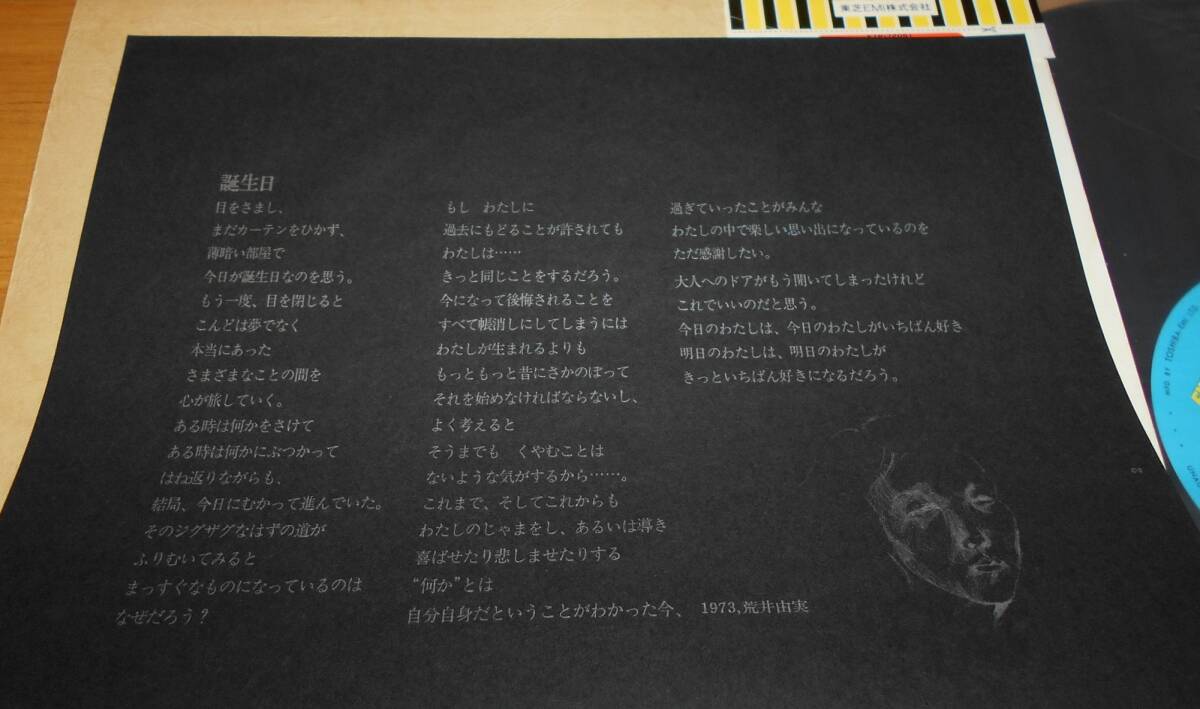 東芝EMI株式会社
誕生日
目をさまし、
まだカーテンをひかず、
薄暗い部屋で
今日が誕生日なのを思う。
もう一度、目を閉じると
こんどは夢でなく
本当にあった
さまざまなことの間を
心が旅していく。
ある時は何かをさけて
ある時は何かにぶつかって
はね返りながらも、
結局、今日にむかって進んでいた。
そのジグザグなはずの道が
ふりむいてみると
まっすぐなものになっているのは
なぜだろう?
もし わたしに
過去にもどることが許されても
わたしは……
きっと同じことをするだろう。
今になって後悔されることを
すべて帳消しにしてしまうには
わたしが生まれるよりも
もっともっと昔にさかのぼって
それを始めなければならないし、
よく考えると
そうまでも くやむことは
ないような気がするから……。
これまで、そしてこれからも
わたしのじゃまをし、あるいは導き
喜ばせたり悲しませたりする
“何か”とは
自分自身だということがわかった今、
過ぎていったことがみんな
わたしの中で楽しい思い出になっているのを
ただ感謝したい。
大人へのドアがもう開いてしまったけれど
これでいいのだと思う。
今日のわたしは、今日のわたしがいちばん好き
明日のわたしは、明日のわたしが
きっといちばん好きになるだろう。
1973,荒井由実
MFD. BY TOSHIBA EMI LTD.